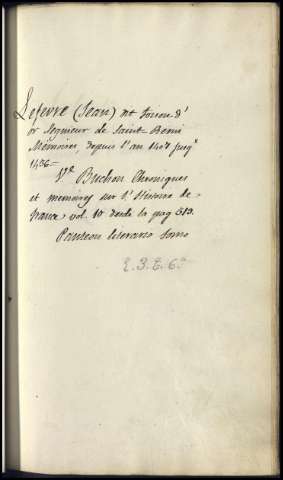 Lefevre (Jean) dit toison d'
or Segneur de Saint Remi
Memoires, depuis l'an 1407 jusqª
1436.—
Vª Buchon Chroniques
et memoires sur l'Histoire de
france vol. 10 desde la pag 313.
Panteon literario tomo
E. 3. E. 6ª